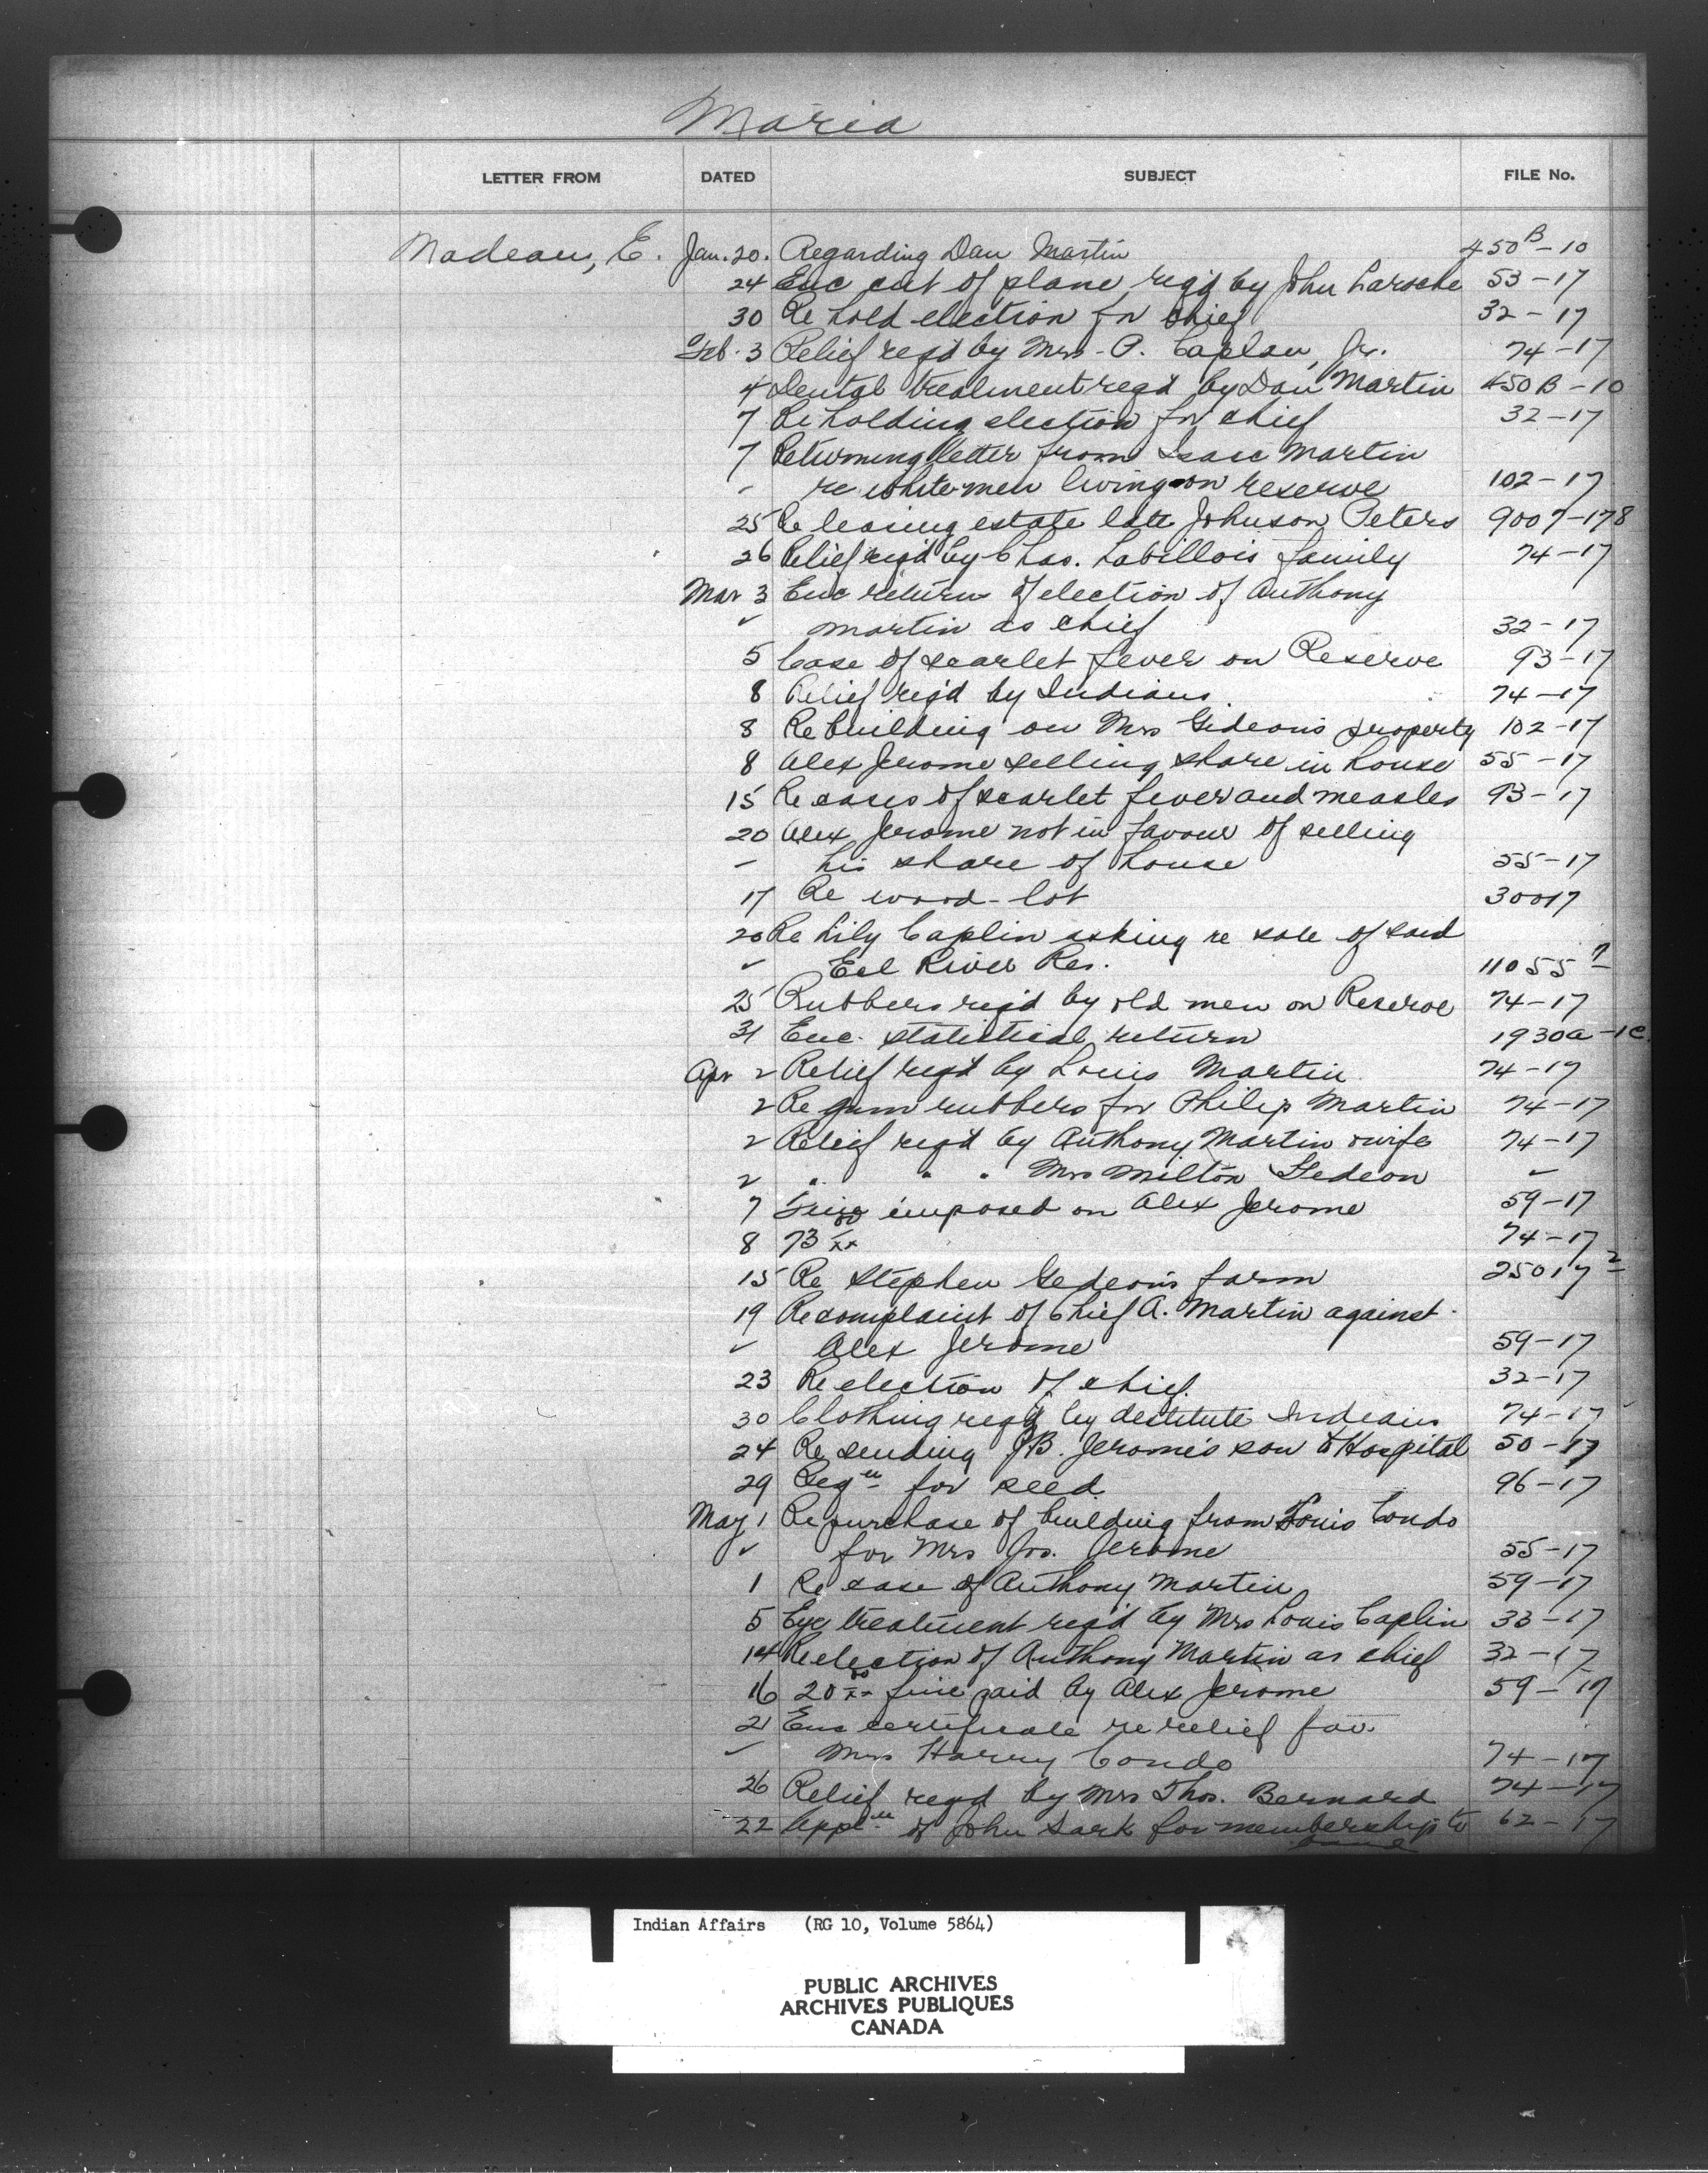 Maria
LETTER FROM DATED SUBJECT FILE No.
Nadeau, E. Jan. 20. Regarding Dan Martin 450B-10
24 Enc cut of plane reqd by John Laroche 53-17
30 Re hold election for chief 32-17
Feb. 3 Relief reqd by Mrs. P. Caplan, Jr. 74-17
4 Dental treatment reqd by Dan Martin 450B-10
7 Re holding election for chief 32-17
7 Returning letter from Isaac Martin
" re white men living on reserve 102-17
25 Re leasing estate late Johnson Peters 9007-178
26 Relief reqd by Chas. Labillois family 74-17
Mar 3 Enc return of election of Anthony
" Martin as chief 32-17
5 Case of scarlet fever on Reserve 93-17
8 Relief req'd by Indians 74-17
8 Re building on Mrs Gideon's property 102-17
8 Alex Jerome selling share in house 55-17
15 Re cases of scarlet fever and measles 93-17
20 Alex Jerome not in favour of selling
" his share of house 55-17
17 Re wood-lot 30017
20 Re Lily Caplin asking re sale of said
" Eel River Res. 11055
25 Rubbers reqd by old men on Reserve 74-17
31 Enc. statistical return 1930a-1c
Apr 2 Relief reqd by Louis Martin 74-17
2 Re gum rubbers for Philip Martin 74-17
2 Relief reqd by Anthony Martin & wife 74-17
2 " " " Mrs Milton Gedeon "
7 Fine imposed on Alex Jerome 59-17
8 73 00/xx 74-17
15 Re Stephen Gedeon's farm 25017-2
19 Re complaint of Chief A. Martin against
" Alex Jerome 59-17
23 Re election of chief. 32-17
30 Clothing reqd by destitute Indians 74-17
24 Re sending J.B. Jerome's son to Hospital 50-17
29 Reqn for seed 96-17
May 1 Re purchase of building from Louis Condo
" for Mrs Jos. Jerome 55-17
1 Re case of Anthony Martin 59-17
5 Eye treatment reqd by Mrs Louis Caplin 33-17
14 Re election of Anthony Martin as chief 32-17
16 20 00/xx fine paid by Alex Jerome 59-17
21 Enc certificate re relief fav.
" Mrs Harry Condo 74-17
26 Relief reqd by Mrs Thos. Bernard 74-17
22 Appln of John Sark for membership to 62-17
Indian Affairs (RG 10, Volume 5864)
PUBLIC ARCHIVES
ARCHIVES PUBLIQUES
CANADA